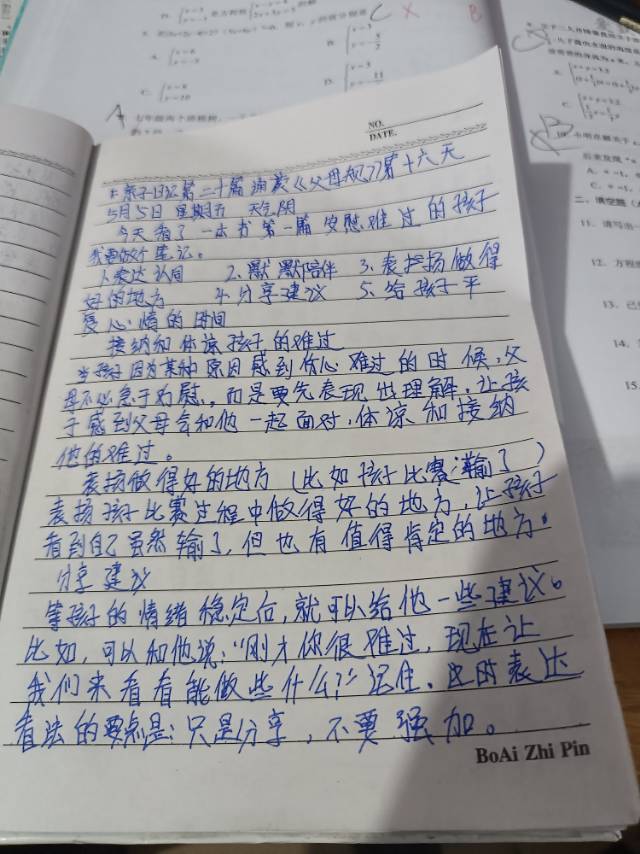 NO.
DATE.
亲子日记第二十篇 诵读《父母规》第十六天
5月5日 星期五 天气阴
今天看了一本书第一篇安慰难过的孩子
我要做个笔记。
1.表达认同 2.默默陪伴 3.表扬做得
好的地方 4.分享建议 5.给孩子平
复心情的时间
接纳和体谅孩子的难过
当孩子因为某种原因感到伤心难过的时候,父
母不必急于劝慰,而是要先表现出理解,让孩
子感到父母会和他一起面对,体凉和接纳
他的难过。
表扬做得好的地方(比如孩子比赛输了)
表扬孩子比赛过程中做得好的地方,让孩子
看到自己虽然输了,但也有值得肯定的地方.
分享建议
等孩子的情绪稳定后,就可以给他一些建议。
比如,可以和他说:“刚才你很难过,现在让
我们来看看能做些什么?”记住,此时表达
看法的要点是:只是分享,不要强加。
BoAi Zhi Pin
A.
B.
C.
D.
二、填空题
11.
12.
13.
14.
15